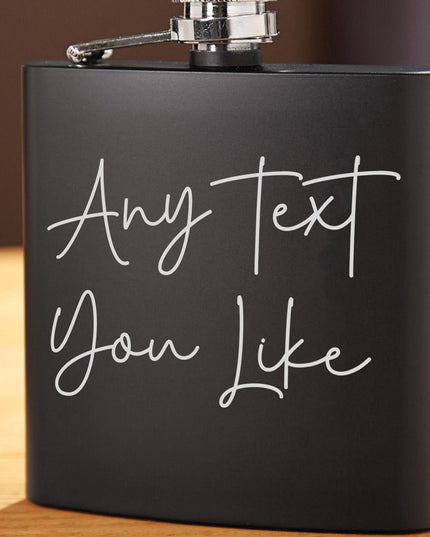 Any Text
You Like